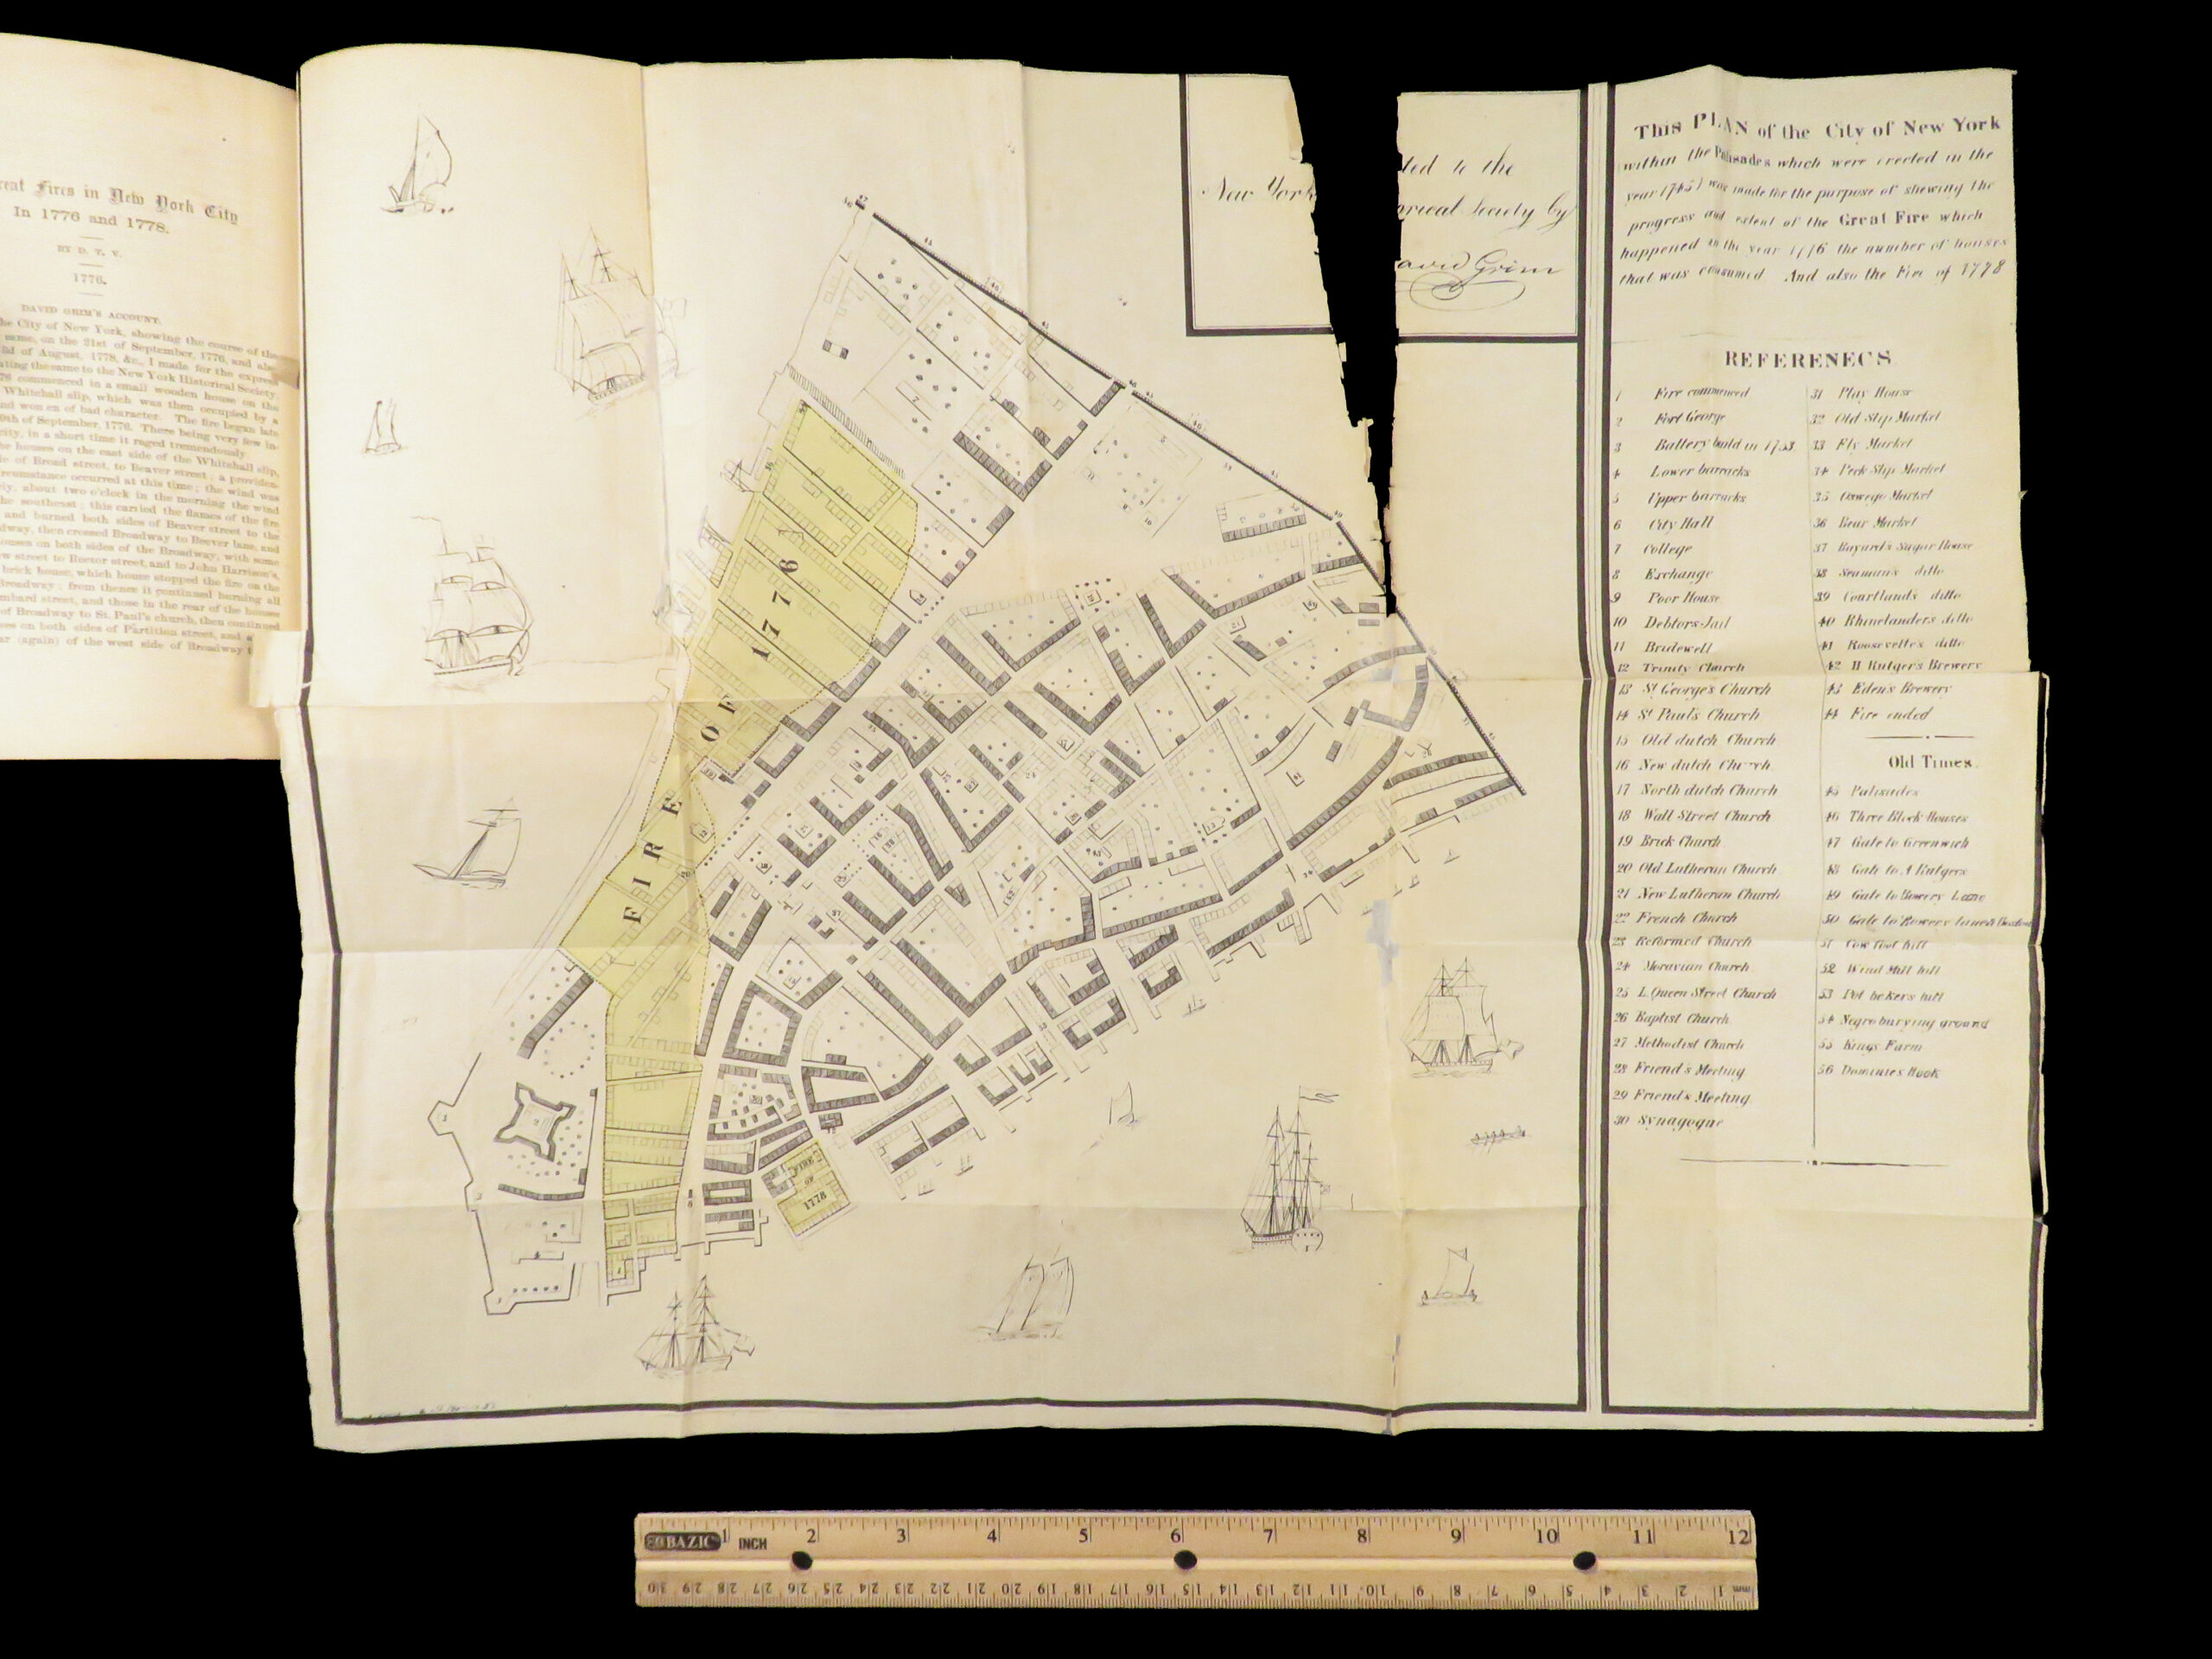 Great Fires in New York City
In 1776 and 1778.
BY D. T. V.
1776.
DAVID GRIM'S ACCOUNT.
the City of New York, showing the course of the
same, on the 21st of September, 1776, and
of August, 1778, &c., I made for the express
the same to the New York Historical Society.
commenced in a small wooden house on the
Whitehall slip, which was then occupied by a
and women of bad character. The fire began late
of September, 1776. There being very few in-
city, in a short time it raged tremendously.
the houses on the east side of the Whitehall slip,
of Broad street, to Beaver street; a providen-
circumstance occurred at this time; the wind was
about two o'clock in the morning the wind
the southeast; this carried the flames of the fire
and burned both sides of Beaver street to the
then crossed Broadway to Beaver lane, and
houses on both sides of the Broadway, with some
street to Rector street, and to John Harrison's,
brick house, which house stopped the fire on the
Broadway; from thence it continued burning all
Lumbard street, and those in the rear of the houses
of Broadway to St. Paul's church, then continued
on both sides of Partition street, and
(again) of the west side of Broadway
ted to the
New York orical Society by
avid Grim
This PLAN of the City of New York
within the Palisades which were erected in the
year 1745 was made for the purpose of shewing the
progress and extent of the Great Fire which
happened in the year 1776 the number of houses
that was consumed And also the Fire of 1778
REFERENECS
1 Fire commenced
2 Fort George
3 Battery build in 1753
4 Lower barracks
5 Upper barracks
6 City Hall
7 College
8 Exchange
9 Poor House
10 Debtors Jail
11 Bridewell
12 Trinity Church
13 St George's Church
14 St Paul's Church
15 Old dutch Church
16 New dutch Church
17 North dutch Church
18 Wall Street Church
19 Brick Church
20 Old Lutheran Church
21 New Lutheran Church
22 French Church
23 Reformed Church
24 Moravian Church
25 L. Queen Street Church
26 Baptist Church
27 Methodist Church
28 Friend's Meeting
29 Friend's Meeting
30 Synagogue
31 Play House
32 Old Slip Market
33 Fly Market
34 Peck Slip Market
35 Oswego Market
36 Bear Market
37 Bayard's Sugar House
38 Seaman's ditto
39 Courtland's ditto
40 Rhinelander's ditto
41 Roosevelte's ditto
42 H Rutger's Brewery
43 Eden's Brewery
44 Fire ended
Old Times
45 Palisades
46 Three Block Houses
47 Gate to Greenwich
48 Gate to A Rutgers
49 Gate to Bowery Lane
50 Gate to Bowery Lane &
51 Cow foot hill
52 Wind Mill hill
53 Pot bakers hill
54 Negro burying ground
55 Kings Farm
56 Dominies Hook
FIRE OF 1776
FIRE
OF
1778
BAZIC 1 INCH 2 3 4 5 6 7 8 9 10 11 12
30 29 28 27 26 25 24 23 22 21 20 19 18 17 16 15 14 13 12 11 10 9 8 7 6 5 4 3 2 1 mm